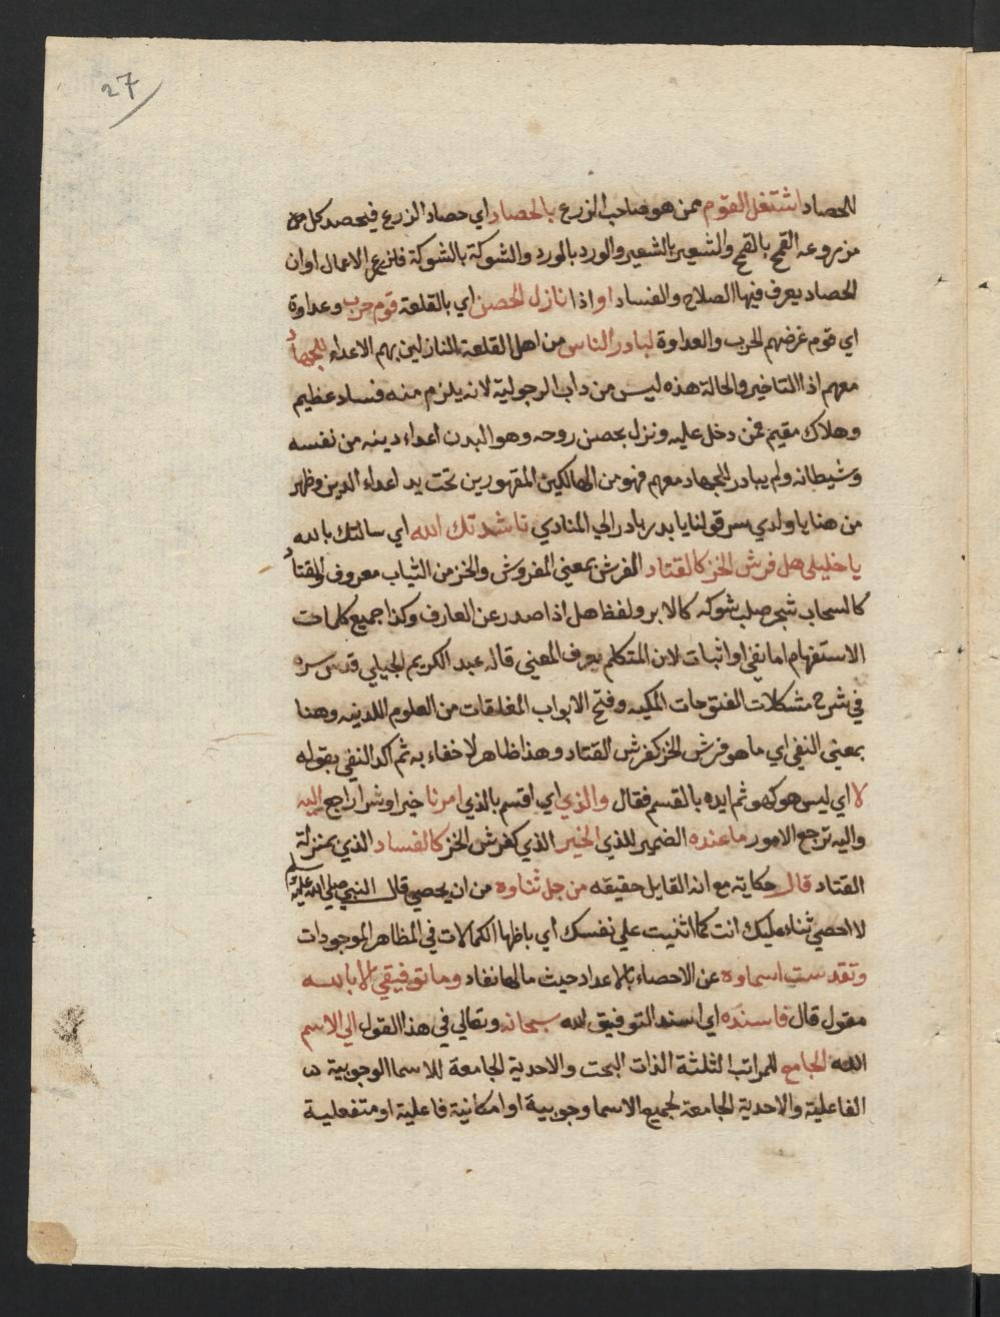 27
للحصاد اشتغل القوم ممن هو صاحب الزرع بالحصاد اي حصاد الزرع فيحصد كل من
مزروعه القمح بالقمح والشعير بالشعير والورد بالورد والشوكة بالشوكة فلزرع الاعمال اوان
الحصاد يعرف فيها الصلاح والفساد او اذا نازل الحصن اي بالقلعة قوم حرب وعداوة
اي قوم غرضهم الحرب والعداوة لبادر الناس من اهل القلعة المنازلين بهم الاعداء للجهاد
معهم اذ التاخير والحالة هذه ليس من داب الرجولية لانه يلزم منه فساد عظيم
وهلاك مقيم فمن دخل عليه ونزل بحصن روحه وهو البدن اعداء دينه من نفسه
وشيطانه ولم يبادر للجهاد معهم فهو من الهالكين المقهورين تحت يد اعداء الدين وظهر
من هنا يا ولدي سر قولنا يا بدر بادر الي المنادي ناشدتك الله اي سالتك بالله
يا خليلي هل فرش الخز كالقتاد الفرش بمعني المفروش والخز من الثياب معروف والقتاد
كالسحاب شجر صلب شوكه كالابر ولفظ هل اذا صدر عن العارف وكذا جميع كلمات
الاستفهام اما نفي او اثبات لان المتكلم يعرف المعني قاله عبد الكريم الجيلي قدس سره
في شرح مشكلات الفتوحات المكيه وفتح الابواب المغلقات من العلوم اللدنيه وهنا
بمعني النفي اي ما هو فرش الخز كفرش القتاد وهذا ظاهر لا خفاء به ثم اكد النفي بقوله
لا اي ليس هو كهو ثم ايده بالقسم فقال والذي اي اقسم بالذي امرنا خيرا وشرا راجع اليه
واليه ترجع الامور ما عنده الضمير للذي الخير الذي كفرش الخز كالفساد الذي بمنزلة
القتاد قال حكاية مع انه القايل حقيقه من جل ثناوه من ان يحصي قال النبي صلي الله عليه وسلم
لا احصي ثناء عليك انت كما اثنيت علي نفسك اي باظهار الكمالات في المظاهر الموجودات
وتقدست اسماوه عن الاحصاء بالاعداد حيث ما لها نفاد وما توفيقي الا بالله
مقول قال فاسنده اي اسند التوفيق لله سبحانه وتعالي في هذا القول الي الاسم
الله الجامع للمراتب الثلثة الذات البحت والاحدية الجامعة للاسما الوجوبية
الفاعلية والاحدية الجامعة لجميع الاسما وجوبية او امكانية فاعلية او منفعلية